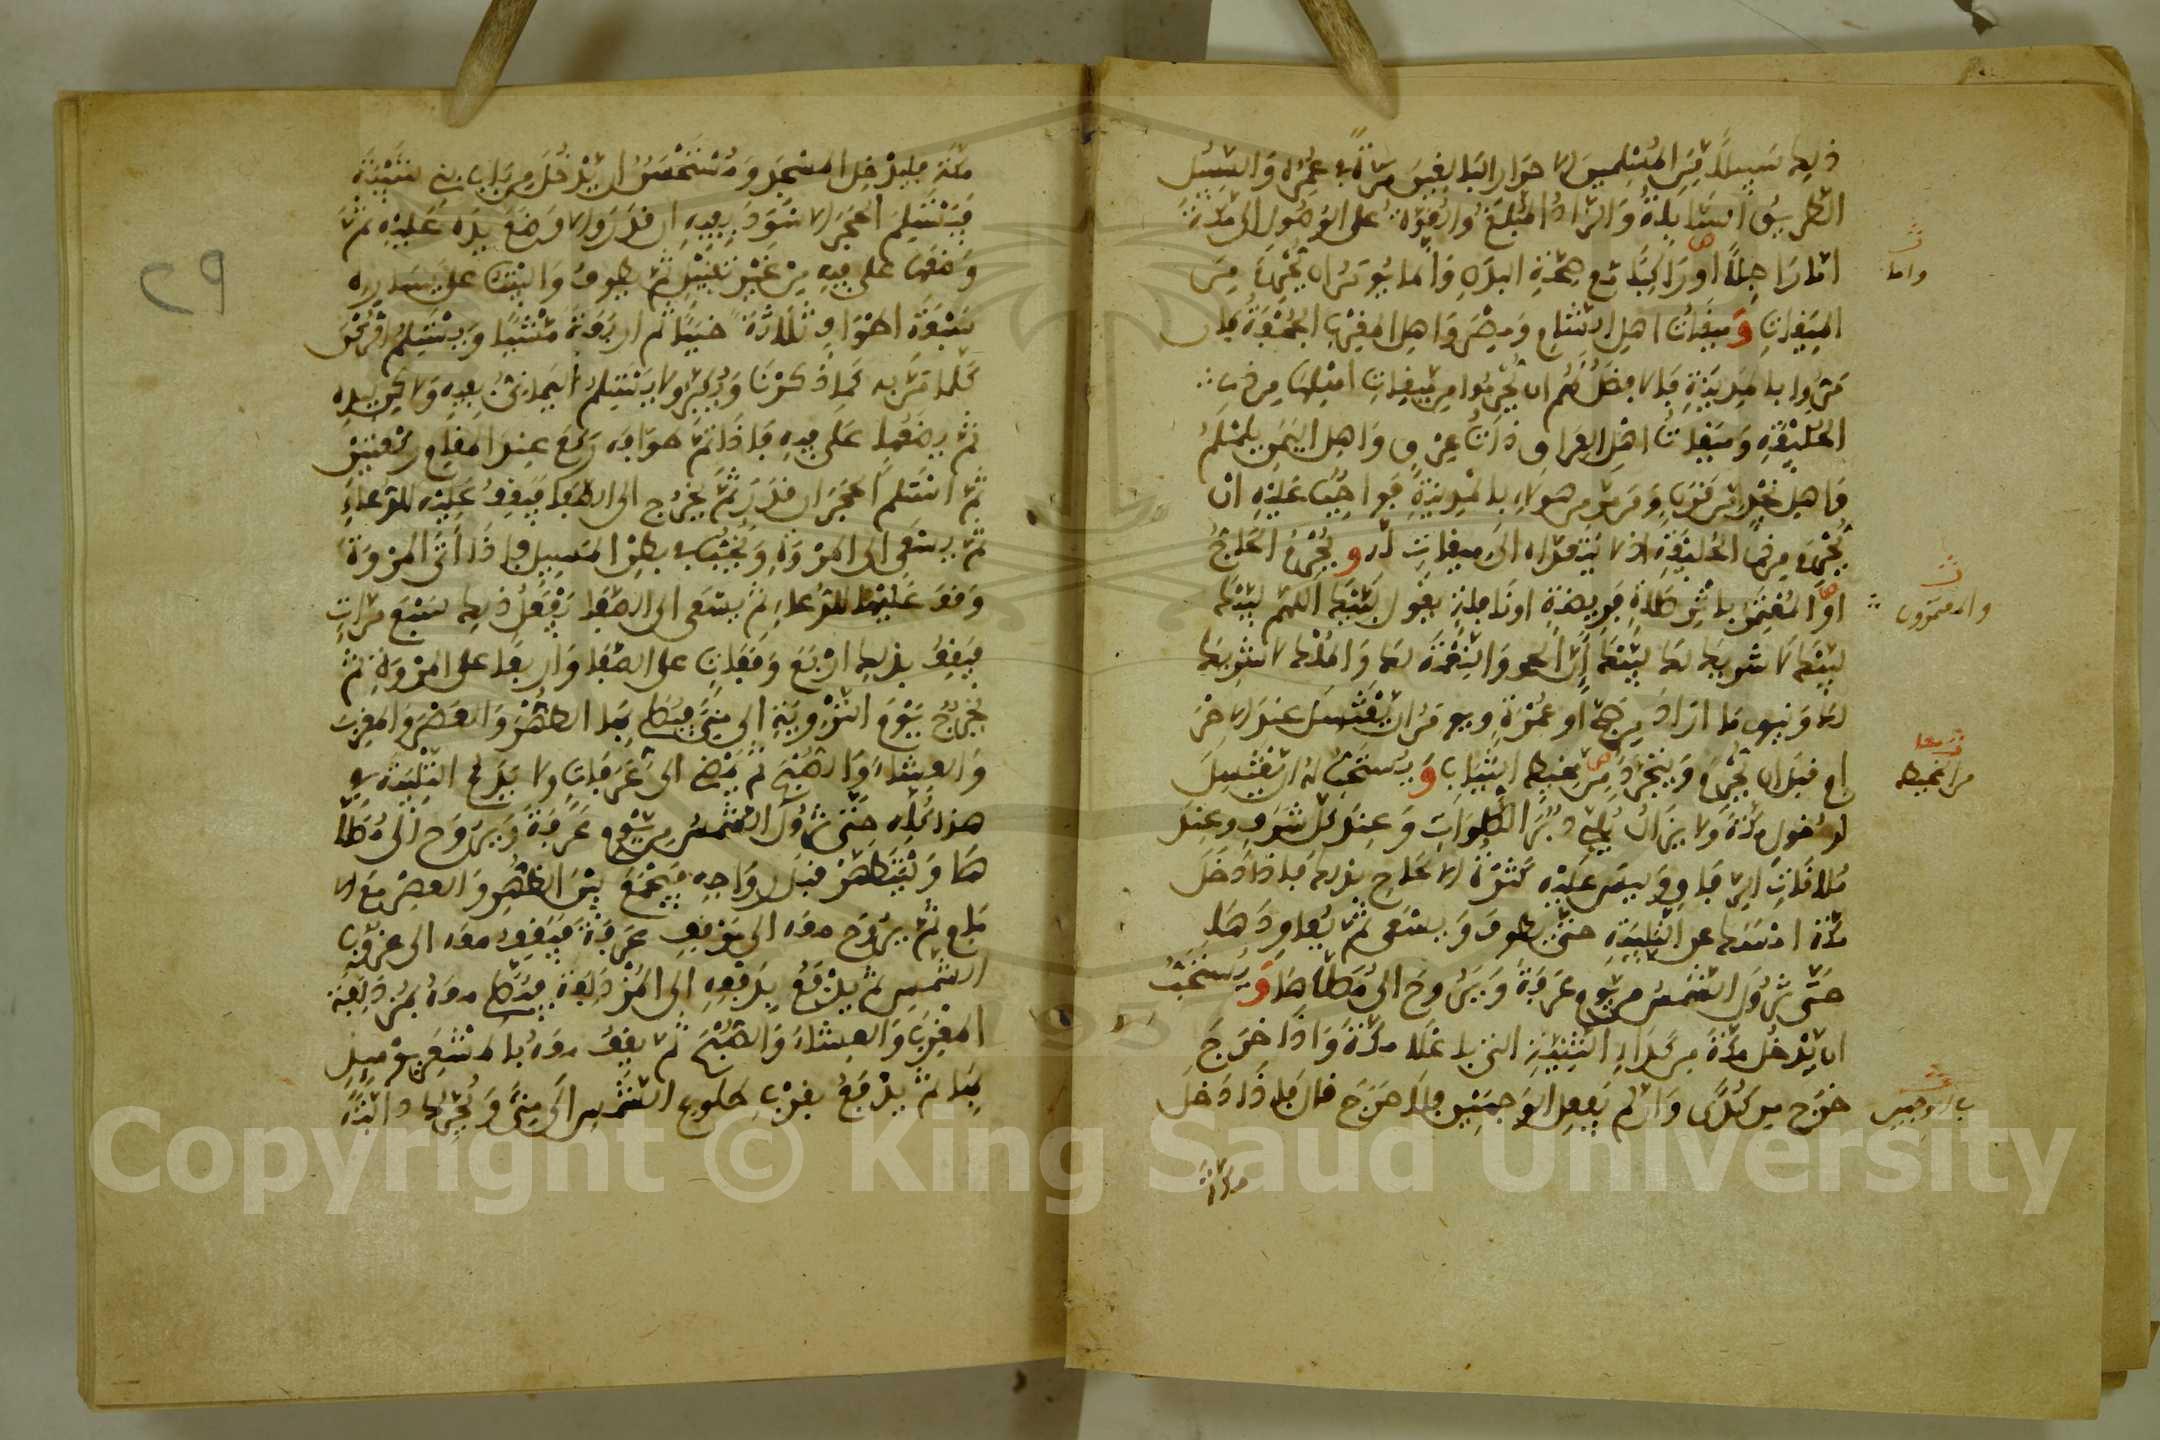 ذلك سبيلا من المسلمين الاحرار البالغين مرة في عمره والسبيل
الطريق السابلة والزاد المبلغ والقوة على الوصول الى مكة
اما راجلا او راكبا مع صحة البدن وانما يومر ان يحرم من
واما
الميقات وميقات اهل الشام ومصر واهل المغرب الجحفة فان
مروا بالمدينة فالافضل لهم ان يحرموا من ميقات اهلها من ذي
الحليفة وميقات اهل العراق ذات عرق واهل اليمن يلملم
واهل نجد من قرن ومن مر من هولاء بالمدينة فواجب عليه ان
يحرم من ذي الحليفة اذ لا يتعداه الى ميقات له ويحرم الحاج
او المعتمر باثر صلاة فريضة او نافلة يقول لبيك اللهم لبيك
والمعتمرون
لبيك لا شريك لك لبيك ان الحمد والنعمة لك والملك لا شريك
لك وينوي ما اراد من حج او عمرة ويومر ان يغتسل عند الاحر
ام قبل ان يحرم ويتجرد من مخيط الثياب ويستحب له ان يغتسل
من مخيط
لدخول مكة ولا يزال يلبي دبر الصلوات وعند كل شرف وعند
ملاقات الرفاق وليس عليه كثرة الالحاح بذلك فاذا دخل
مكة امسك عن التلبية حتى يطوف ويسعى ثم يعاودها
حتى تزول الشمس من يوم عرفة ويروح الى مصلاها ويستحب
ان يدخل مكة من كداء الثنية التي باعلا مكة واذا خرج
خرج من كدى وان لم يفعل في الوجهين فلا حرج قال فاذا دخل
مكة
مكة فليدخل المسجد ومستحسن ان يدخل من باب بني شيبة
فيستلم الحجر الاسود بفيه ان قدر والا وضع يده عليه ثم
وضعها على فيه من غير تقبيل ثم يطوف والبيت على يساره
سبعة اطواف ثلاثة خببا ثم اربعة مشيا ويستلم الركن
كلما مر به كما ذكرنا ويكبر ولا يستلم اليماني بفيه ولكن بيده
ثم يضعها على فيه فاذا تم طوافه ركع عند المقام ركعتين
ثم استلم الحجر ان قدر ثم يخرج الى الصفا فيقف عليه للدعاء
ثم يسعى الى المروة ويخب في بطن المسيل فاذا اتى المروة
وقف عليها للدعاء ثم يسعى الى الصفا يفعل ذلك سبع مرات
فيقف بذلك اربع وقفات على الصفا واربعا على المروة ثم
يخرج يوم التروية الى منى فيصلي بها الظهر والعصر والمغرب
والعشاء والصبح ثم يمضي الى عرفات ولا يدع التلبية في
هذا كله حتى تزول الشمس من يوم عرفة ويروح الى مصلا
ها وليتطهر قبل رواحه فيجمع بين الظهر والعصر مع الا
مام ثم يروح معه الى موقف عرفة فيقف معه الى غروب
الشمس ثم يدفع بدفعه الى المزدلفة فيصلي معه بمزدلفة
المغرب والعشاء والصبح ثم يقف معه بالمشعر يومئذ
بها ثم يدفع بقرب طلوع الشمس الى منى ويحرك دابته
٢٩